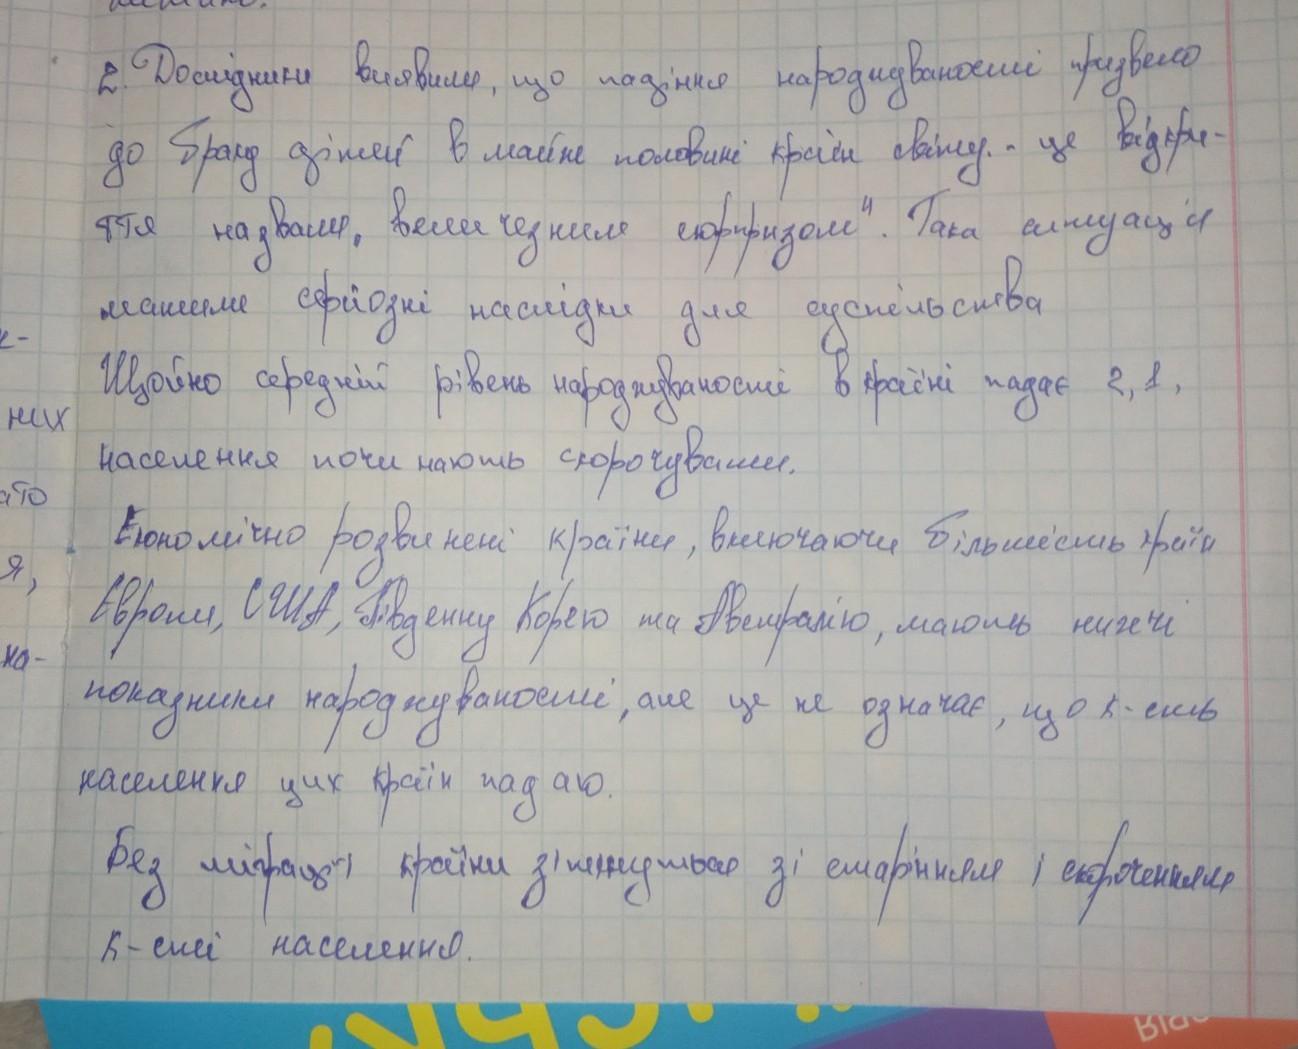 2. Дослідники виявили, що падіння народжуваності призвело
до браку дітей в майже половині країн світу. - це відкри-
ття назвали "величезним сюрпризом". Така ситуація
матиме серйозні наслідки для суспільства
Щойно середній рівень народжуваності в країні падає 2,1,
населення починають скорочувати.
Економічно розвинені країни, включаючи більшість країн
Європи, США, Південну Корею та Австралію, мають нижчі
показники народжуваності, але це не означає, що к-сть
населення цих країн падаю.
Без міграції країни зіткнуться зі старінням і скороченням
к-сті населення.
них
я,
на-